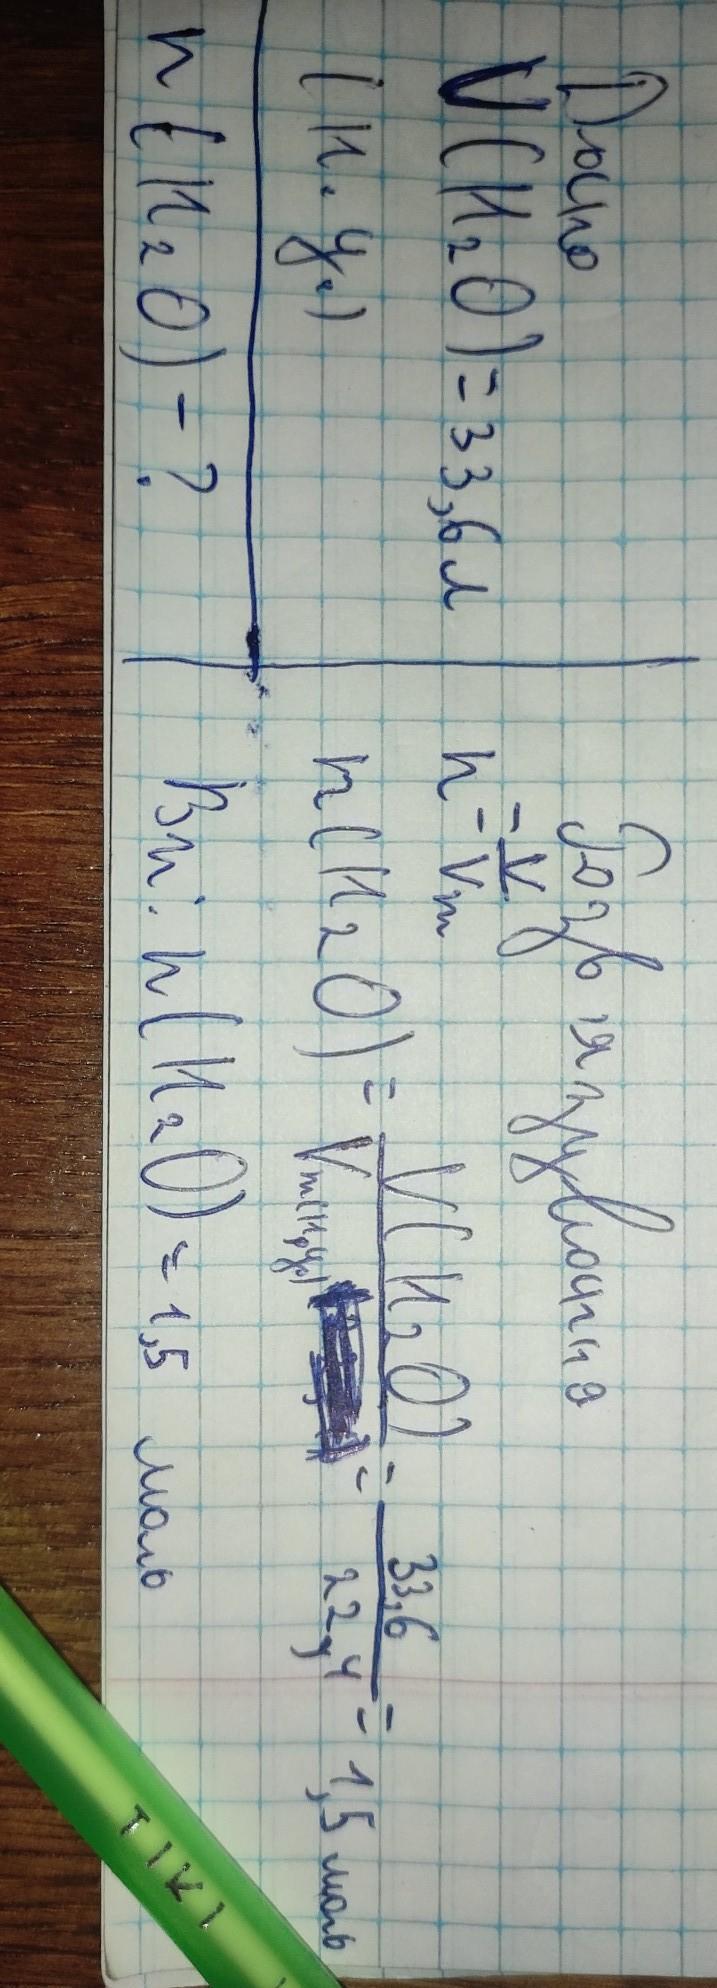 Дано
V(H₂O)=33,6л
(н.у.)
n(H₂O)-?
Розв'язування
n = V/Vm
n(H₂O) = V(H₂O)/Vm(н.у.) = 33,6/22,4 = 1,5 моль
Ві: n(H₂O)=1,5 моль
TIKI